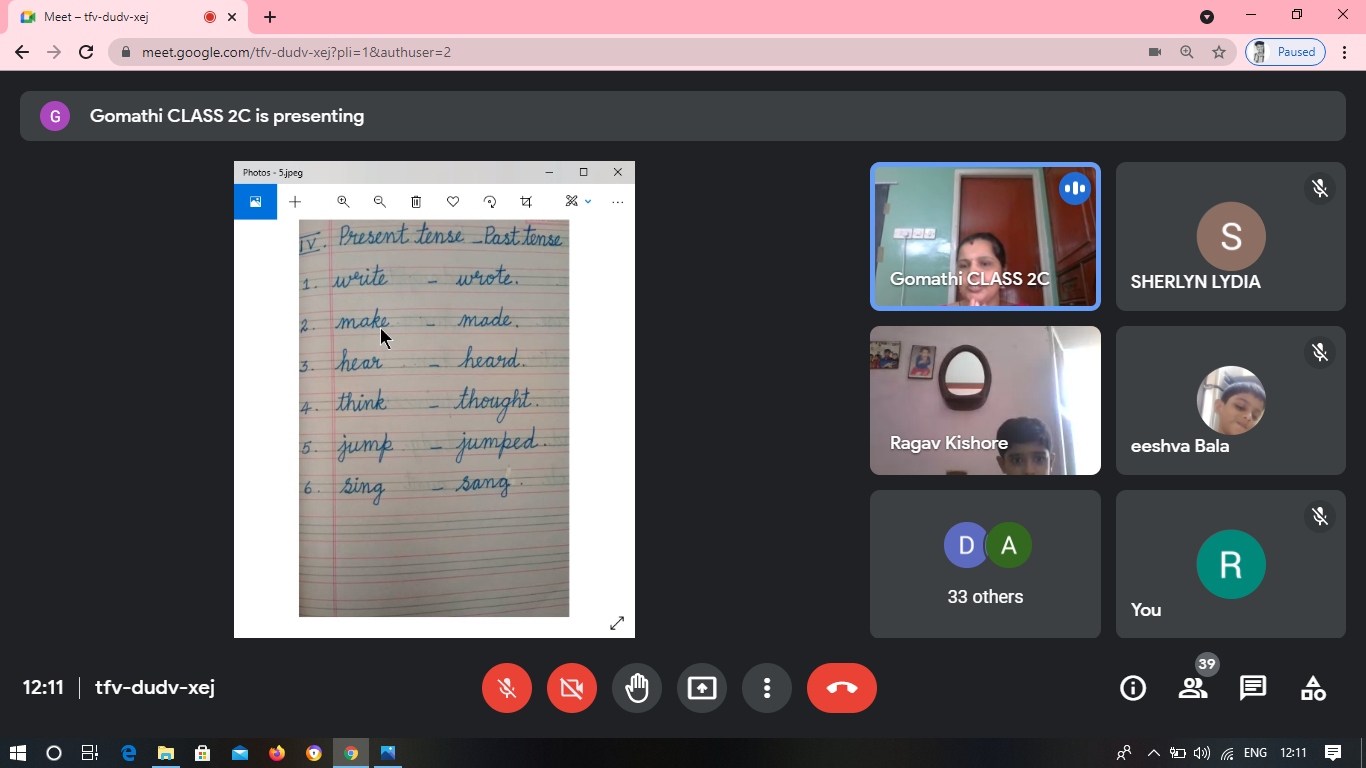 Meet – tfv-dudv-xej
meet.google.com/tfv-dudv-xej?pli=1&authuser=2
Paused
G
Gomathi CLASS 2C is presenting
Photos - 5.jpeg
IV. Present tense - Past tense
1. write - wrote.
2. make - made.
3. hear - heard.
4. think - thought.
5. jump - jumped.
6. sing - sang.
Gomathi CLASS 2C
S
SHERLYN LYDIA
Ragav Kishore
eeshva Bala
D A
33 others
R
You
12:11 | tfv-dudv-xej
39
ENG 12:11